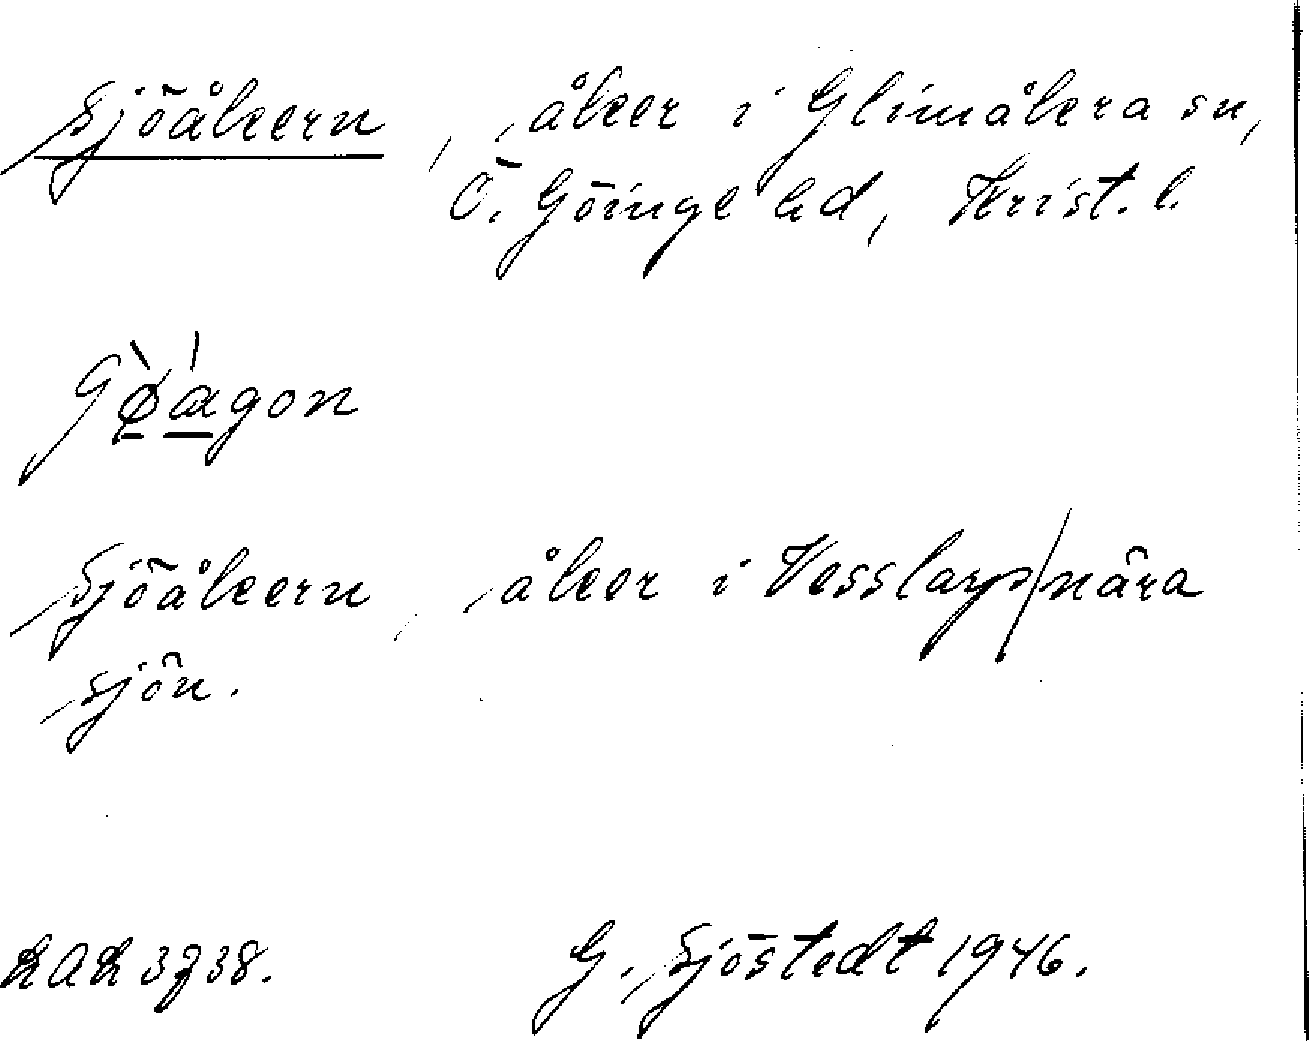 Sjöåkern, åker i Glimåkra sn,
Ö. Göinge hd, Krist. l.
Sjöåkern, åker i Vesslarp/nära
sjön.
G. Sjöstedt 1946.